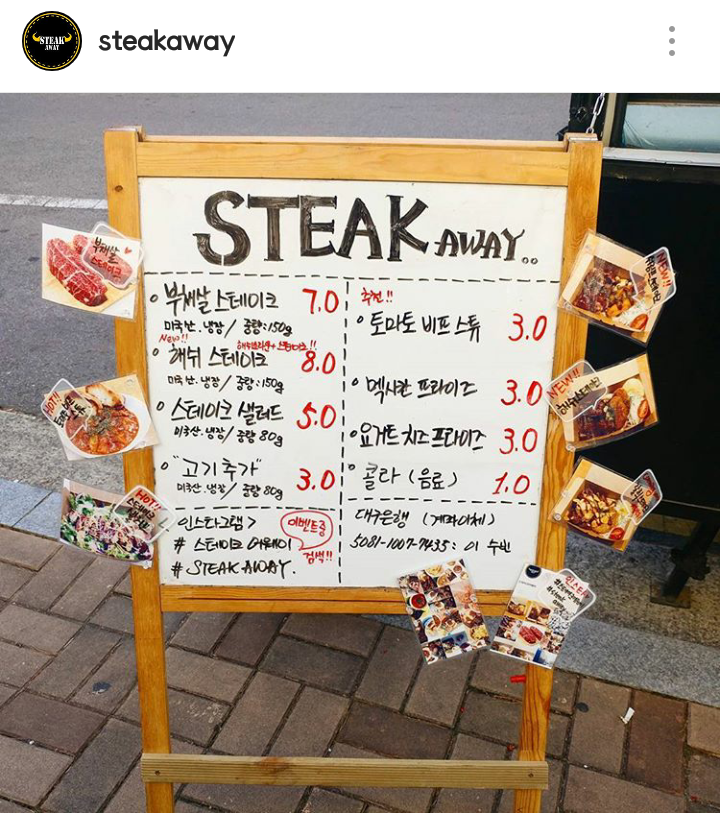 STEAK AWAY
steakaway
STEAK AWAY..
부채살 스테이크 7.0
미국산.냉장/ 중량:150g
New!!
해쉬 스테이크 8.0
미국산.냉장/ 중량:150g
스테이크 샐러드 5.0
미국산.냉장/ 중량 80g
"고기추가" 3.0
미국산.냉장/ 중량 80g
추천!!
토마토 비프스튜 3.0
멕시칸 프라이즈 3.0
요거트 치즈 프라이즈 3.0
콜라 (음료) 1.0
인스타그램 >
이벤트중
# 스테이크 어웨이
검색!!
# STEAK AWAY.
대구은행 (계좌이체)
5081-1007-7435: 이 수빈
부채살
스테이크
HOT!!
HOT!!
NEW!!
NEW!!